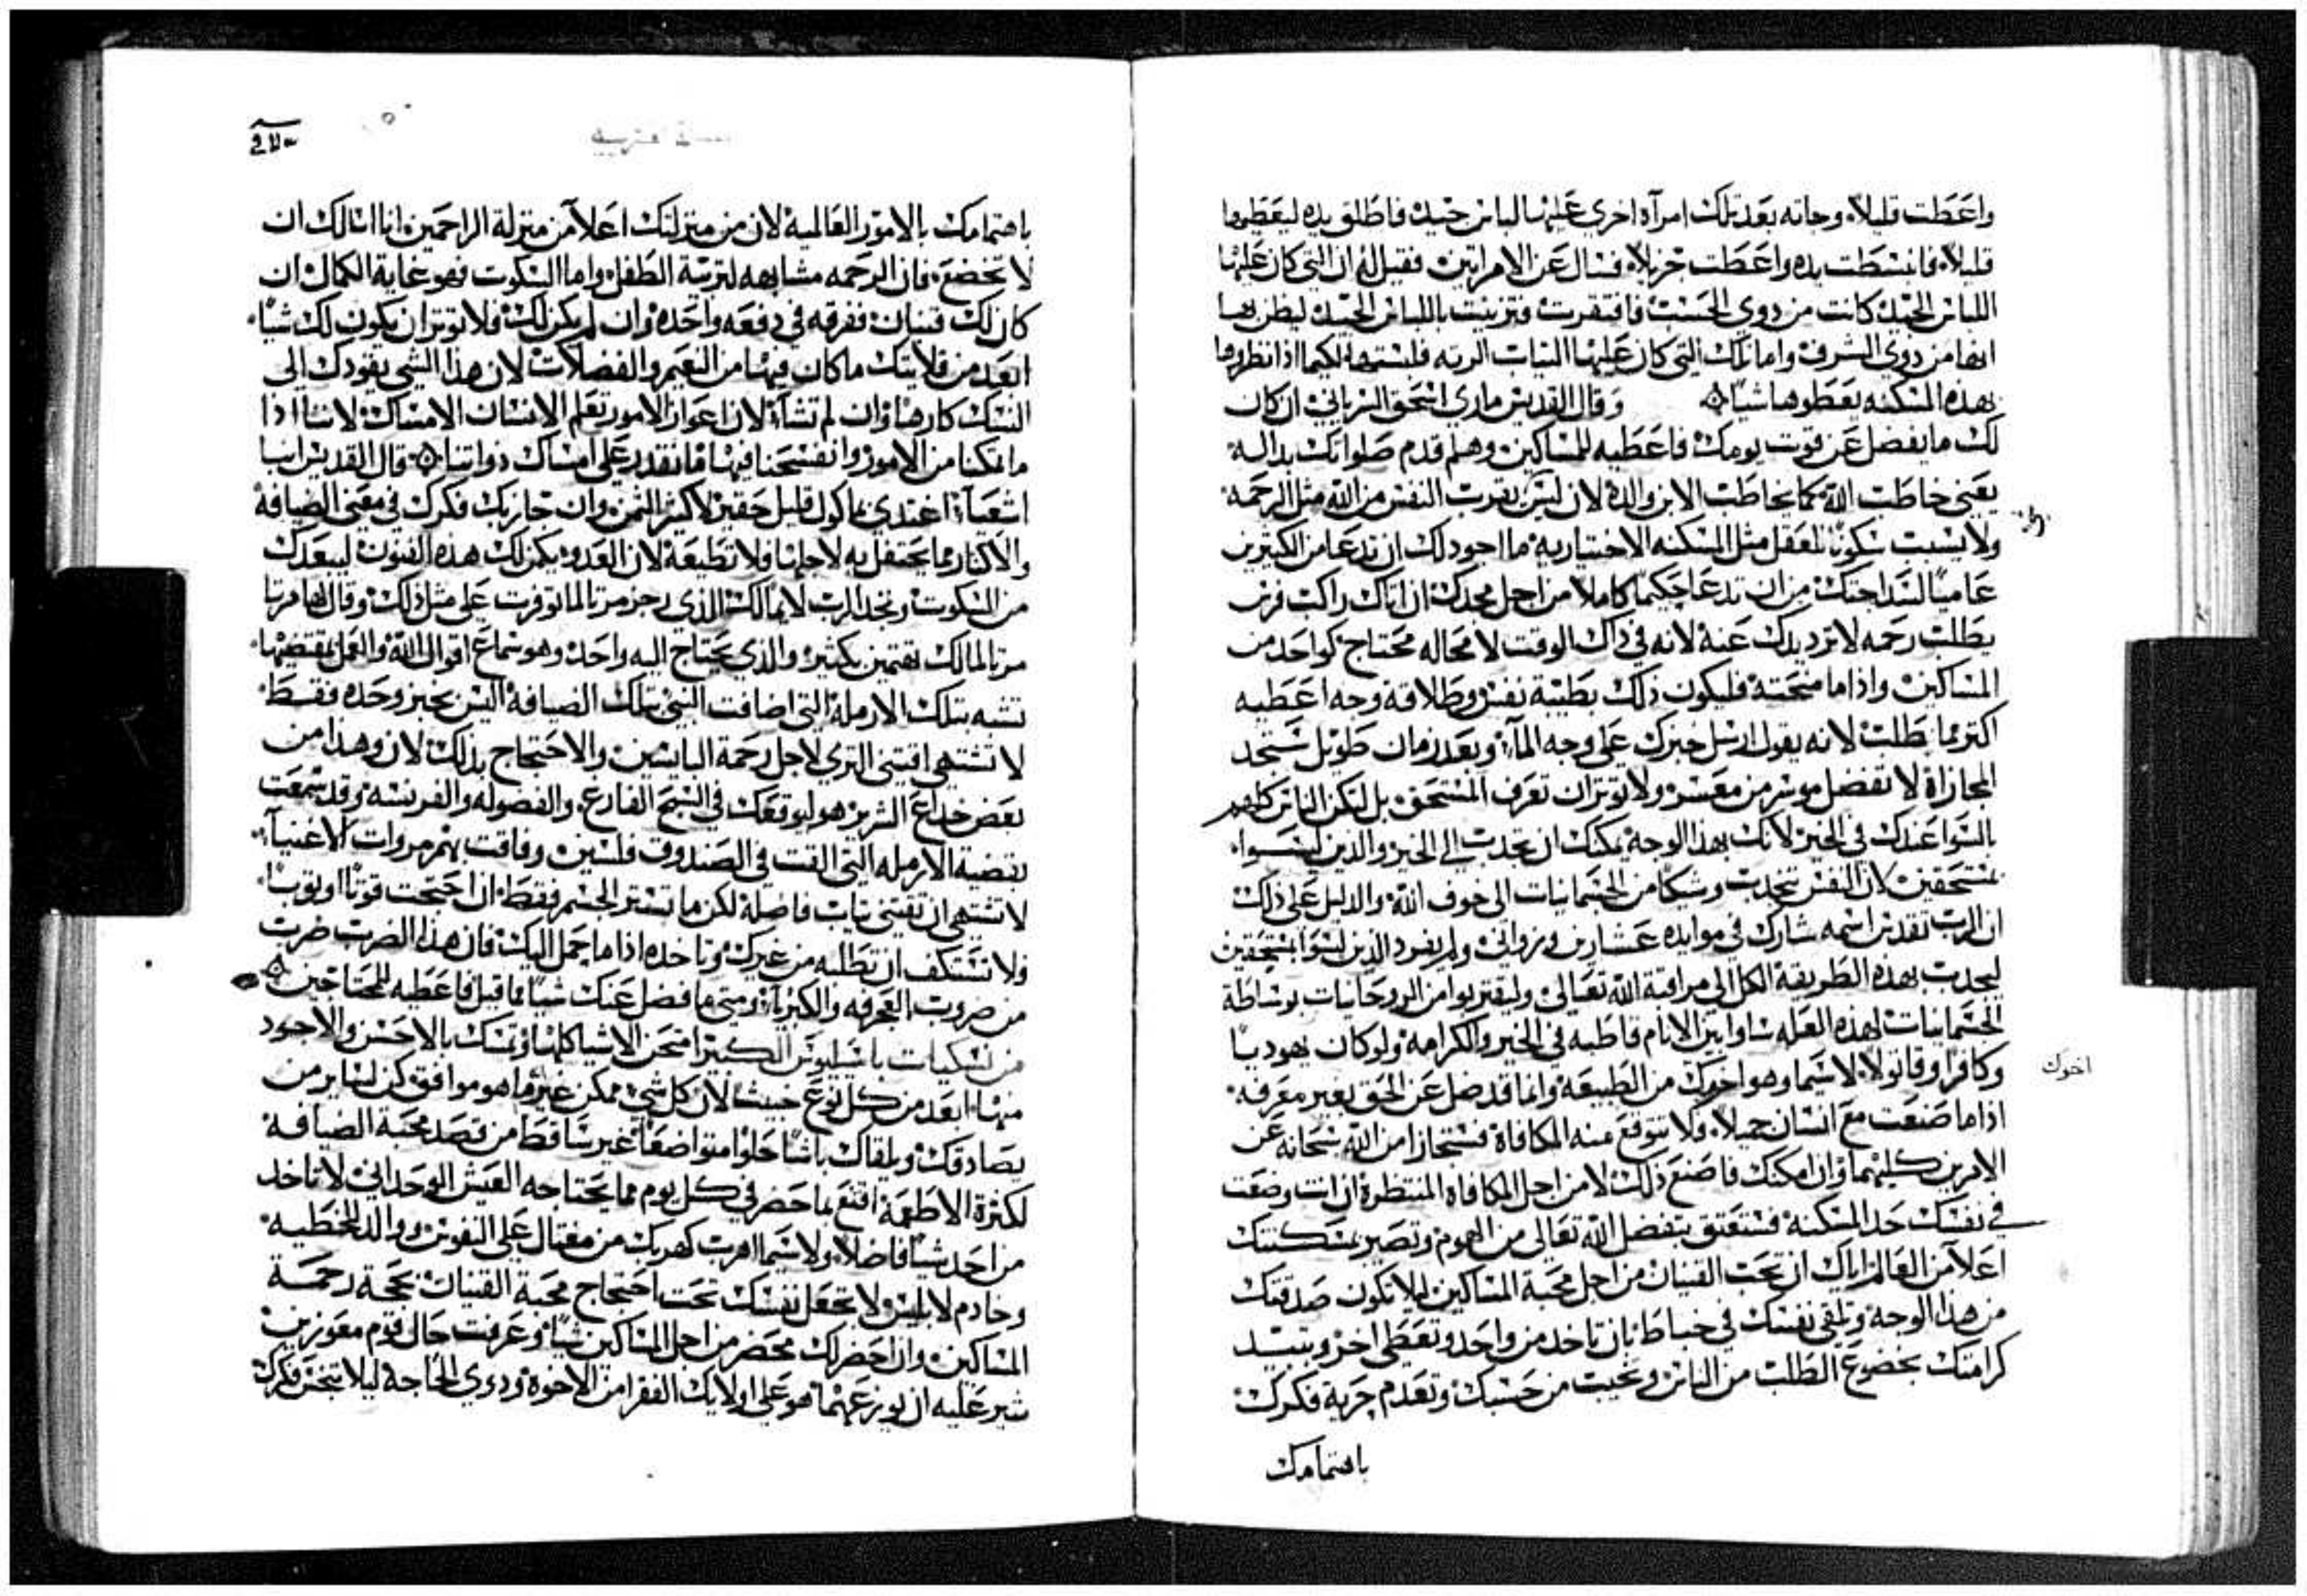 واعطت قليلاً وجاته بعد تلك امرآه اخري عليها لباس جيد فاطلق يده ليعطيها
قليلاً فانبسطت يده واعطت جزيلاً فسال عن الامراتين فقيل له ان التي كان عليها
اللباس الجيد كانت من دوي الحسب فافتقرت فتزينت باللباس الجيد ليظن بها
انها من دوي الشرف واما تلك التي كان عليها التياب الرته فلبستها لكيما اذا نظروها
بهذه المسكنه يعطوها شيا وقال القديس ماري اسحق السرياني ان كان
لك ما يفضل عن قوت يومك فاعطيه للمساكين وهلم قدم صلواتك بداله
يعني خاطب الله كما يخاطب الابن والده لان ليس يقرب النفس من الله مثل الرحمه
ولا يسبب سكونًا للعقل مثل المسكنه الاختياريه ما اجود لك ان تدعا من الكتيرين
عاميًا لسداجتك من ان تدعا حكيمًا كاملا من اجل مجدك ان اتاك راكب فرس
يطلب رحمه لا ترد يدك عنه لانه في داك الوقت لا محاله محتاج كواحد من
المساكين واذا ما منحته فليكون ذلك بطيبة نفس وطلاقة وجه اعطيه
اكتر مما يطلب لانه يقول ارسل خبزك على وجه المآء وبعد زمان طويل ستجد
المجازاة لا تفضل موسر من معسر ولا توتر ان تعرف المستحق بل لتكن الناس كلهم
بالسوا عندك في الخير لانك بهذا الوجه يمكنك ان تجدب الي الخير والدين ليسوا
بمستحقين لان النفس تنجدب وشيكا من الجسمانيات الى خوف الله والدليل على ذلك
ان الرب تقدس اسمه شارك في موايده عشارين وزواني ولم يفرد الذين ليسوا بمستحقين
ليجدب بهذه الطريقه الكل الى مراقبة الله تعالى وليقتربوا من الروحانيات بوساطة
الجسمانيات لهذه العله ساوا بين الانام قاطبه في الخير والكرامه ولو كان يهوديا
وكافرا وقاتولا لا سيما وهو اخوك من الطبيعه وانما قد ضل عن الحق بغير معرفه
اخوك
اذا ما صنعت مع انسان جميلاً ولا تتوقع منه المكافاة فستجازا من الله سبحانه عن
الامرين كليهما وان امكنك فاصنع ذلك لا من اجل المكافاه المنتظره ان انت وضعت
في نفسك حد المسكنه فستعتق بتفضل الله تعالى من الهموم وتصير بمسكنتك
اعلا من العالم اياك ان تحب القنيان من اجل محبة المساكين ليلا تكون صدقتك
من هذا الوجه وتلقي نفسك في خباط بان تاخد من واحد وتعطي اخر وتبيد
كرامتك بخضوع الطلب من الناس وتخيب من حسبك وتعدم حرية فكرك
باهتمامك
باهتمامك بالامور العالميه لان من منزلتك اعلا من منزلة الراحمين انا اسالك ان
لا تخضع فان الرحمه مشابهه لتربية الطفل واما السكوت فهو غاية الكمال ان
كان لك قنيان ففرقه في دفعه واحده وان لم يكن لك فلا توتر ان يكون لك شيا
ابعد من قلايتك ما كان فيها من النعيم والفضلات لان هذا الشي يقودك الى
النسك كارهًا وان لم تشآء لان اعواز الامور تعلم الانسان الامساك لاننا اذا
ما تمكنا من الامور وانفسحنا فيها ما نقدر على امساك ذواتنا قال القديس انبا
اشعيآء اغتدي بماكول قليل حقير لا كثير الثمن وان حاربك فكرك في معنى الضيافة
والاكثار مما يحتفل به لاجلها فلا تطيعه لان العدو يكمن لك هذه الفنون ليبعدك
من السكوت وتجد الرب لايما لك الذي زجر مرتا لما توفرت على مثل ذلك وقال لها مرتا
مرتا ما لك تهتمين بكثير والذي يحتاج اليه واحد وهو سماع اقوال الله والعمل بمقتضيها
تشبه بتلك الارمله التي اضافت النبي بتلك الضيافة اليس بخبز وحده فقط
لا تشتهي اقتني التري لاجل رحمة البايسين والاحتجاج بذلك لان وهذا من
بعض خداع الشرير هو ليوقعك في السبح الفارع والفضوله والفرنسه وقد سمعت
بقضية الارمله التي القت في الصندوق فلسين وفاقت بهم مروات الاغنيآء
لا تشتهي ان تقتني تياب فاضله لكن ما تستر الجسم فقط ان احتجت قوتًا او توبًا
فلا تستنكف ان تطلبه من غيرك وتاخده اذا ما حمل اليك فان هذا الضرب ضرب
من ضروب العجرفه والكبريآء ومتى ما فضل عنك شيًا ما قبل فاعطه للمحتاجين
من نسكيات باسيليوس الكبير امتحن الاشيا كلها وتمسك بالاحسن والاجود
منها ابعد من كل نوع خبيث لان كل شي ممكن غير ما هو موافق كن لساير من
يصادقك ويلقاك باشًا حلوا متواضعًا غير ساقط من قصد محبة الضيافه
لكثرة الاطعمه اقنع بما حضر في كل يوم مما يحتاجه العيش الوحداني لا تاخد
من احد شيًا فاضلاً ولا سيما اهرب كهربك من مغتال على النفوس ووالد للخطيه
وخادم لابليس ولا تجعل نفسك تحت احتجاج محبة القنيات بحجة رحمة
المساكين وان احضر لك محضر من اجل المساكين شيًا وعرفت حال قوم معوزين
شير عليه ان يوزع عنهما هو على اولايك الفقرا من الاخوه ودوي الحاجه ليلا يتنجس فكرك